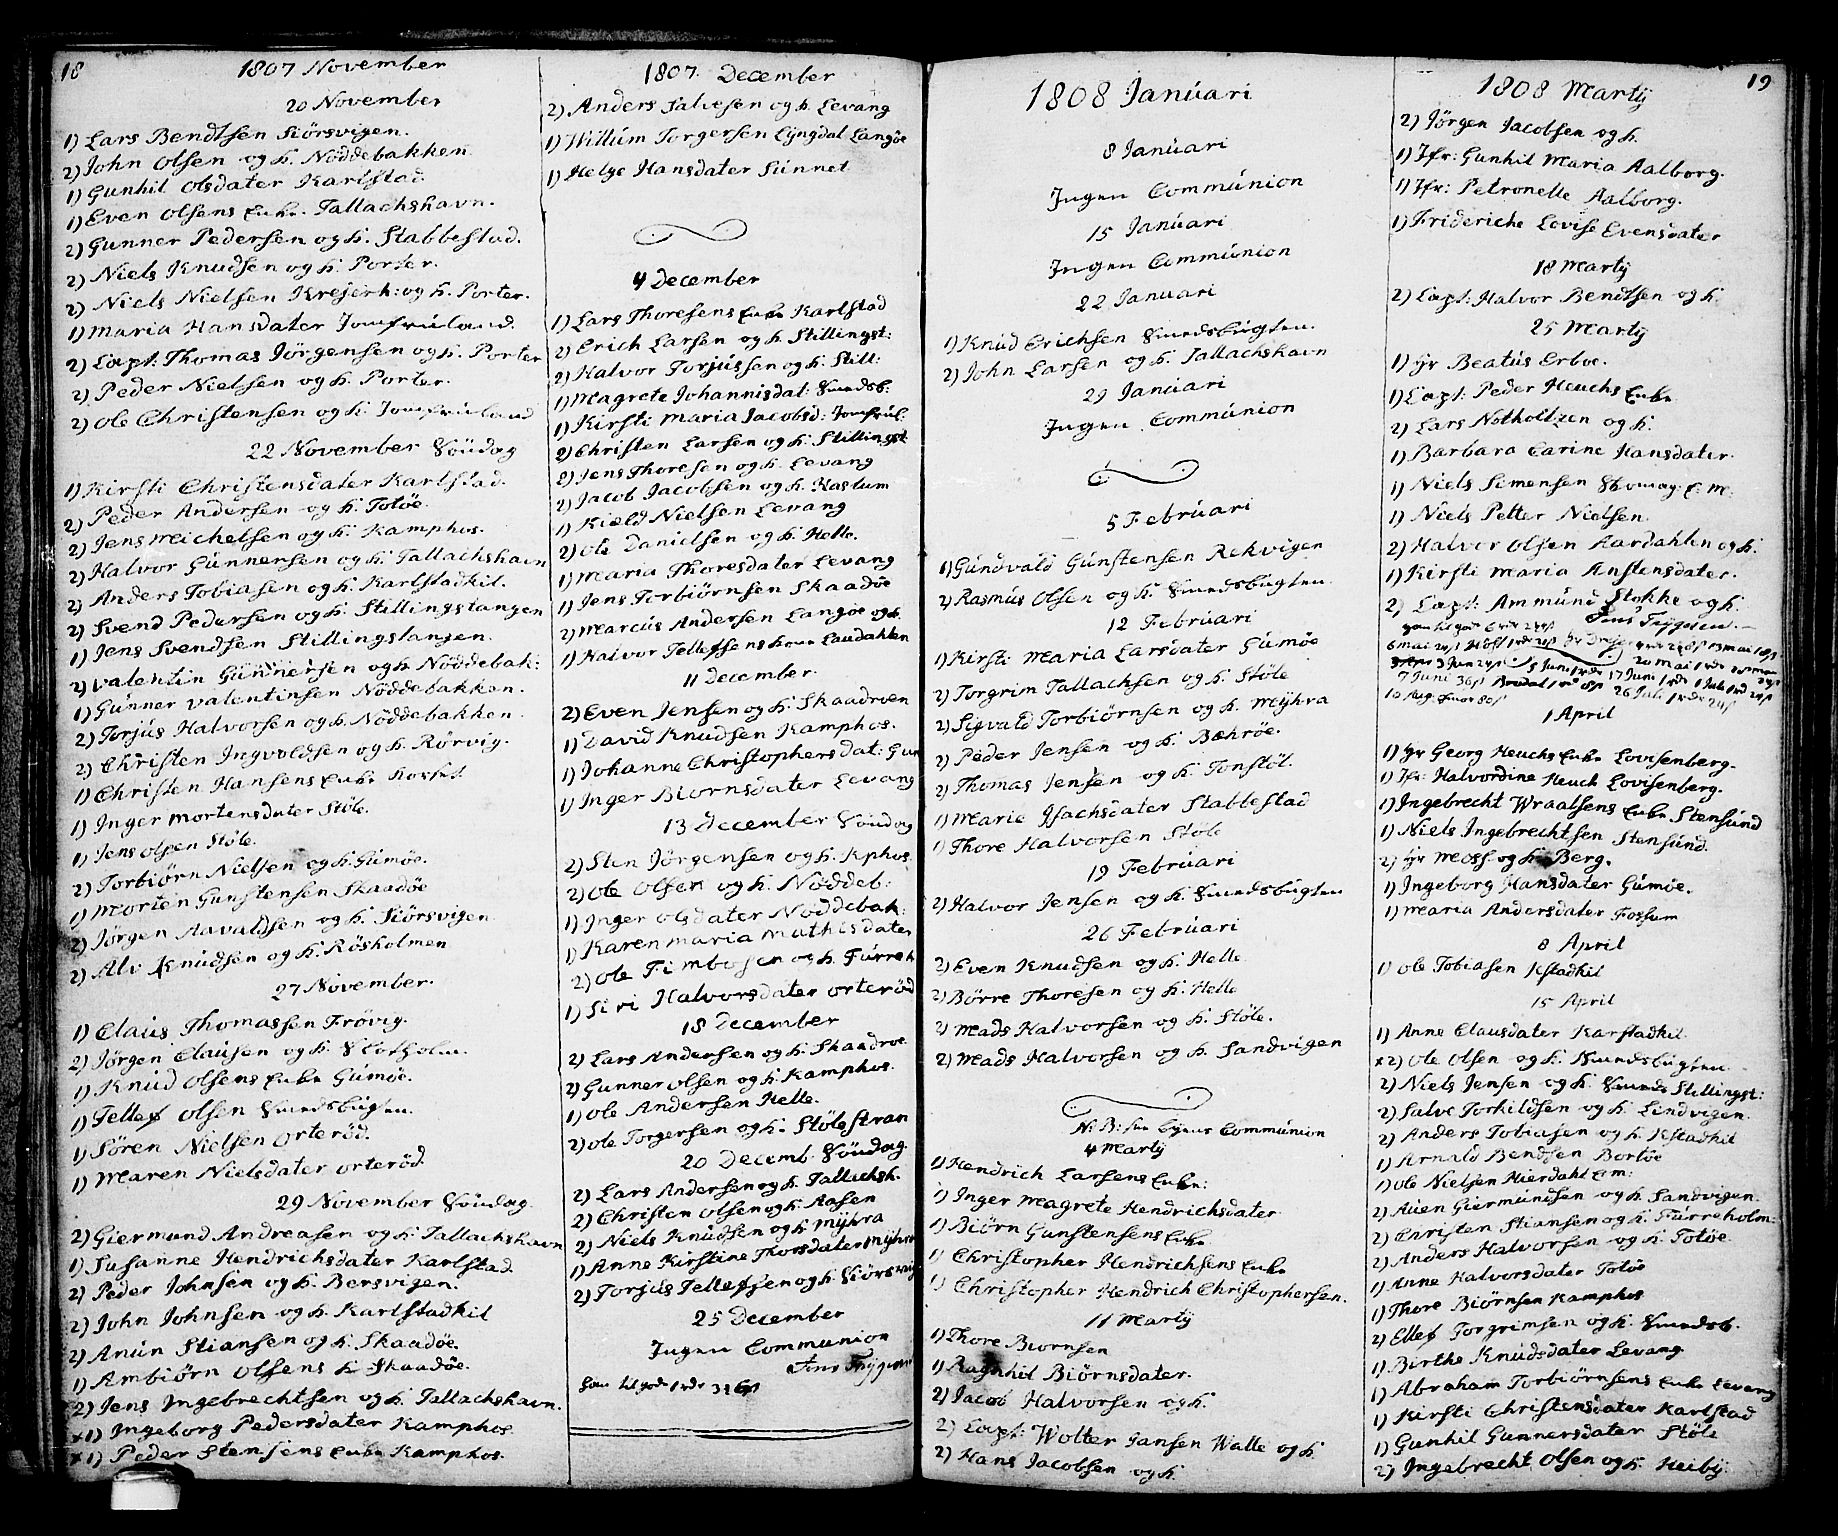 18
1807 November
20 November
1) Lars Bendtsen Kiörsvigen.
2) John Olsen og k. Nöddebakken
1) Gunhil Olsdater Karlstad
1) Even Olsens Enke Tallachshavn.
2) Gunner Pedersen og k. Stabbestad.
2) Niels Knudsen og k. Porter.
2) Niels Nielsen og k. Porter.
1) Maria Hansdater Jomfruland.
2) Capt: Thomas Jörgensen og k. Porter
2) Peder Nielsen og k. Porter.
2) Ole Christensen og k. Jomfruland
22 November Söndag
1) Kirsti Christensdater Karlstad.
2) Peder Andersen og k. Totöe.
2) Jens Michelsen og k. Kamphos.
2) Halvor Gunnersen og k. Tallachshavn
2) Anders Tobiasen og k. Karlstadkil.
2) Svend Pedersen og k. Stillingstangen
1) Jens Svendsen Stillingstangen.
2) Valentin Gunnersen og k Nöddebak:
1) Gunner Valentinsen Nöddebakken.
2) Torjus Halvorsen og k. Nöddebakken.
2) Christen Ingvoldsen og k. Rörvig.
1) Christen Hansens Enke
1) Inger Mortensdater Stöle.
1) Jens Olsen Stöle.
2) Torbiörn Nielsen og k. Gumöe.
1) Morten Gunstensen Skaadöe
2) Jörgen Aavaldsen og k. Kiörsvigen
2) Alv Knudsen og k. Rösholmen
27 November.
1) Claus Thomassen Frövig.
2) Jörgen Clausen og k. Slotholm.
1) Knud Olsens Enke Gumöe.
1) Tellef Olsen Smedsbugten.
1) Sören Nielsen Orteröd.
1) Maren Nielsdater Orteröd.
29 November Söndag.
2) Giermund Andreasen og k Tallachshavn
1) Susanne Hendrichsdater Karlstad.
2) Peder Johnsen og k. Bersvigen.
2) John Johnsen og k. Karlstadkil
2) Anun Stiansen og k. Skaadöe.
1) Ambiörn Olsens k Skaadöe.
2) Jens Ingebrechtsen og k. Tallachshavn.
x1) Ingeborg Pedersdater Kamphos
x1) Peder Stensens Enke Kamphos.
1807. December
2) Anders Salvesen og k. Levang
1) Willum Torgersen Lyngdal Langöe
1) Helge Hansdater Sunnet
4 December
1) Lars Thoresens Enke Karlstad
2) Erich Larsen og k Stillingst:
2) Halvor Torjussen og k. Still:
1) Magrete Johannisdat: Smedsb:
1) Kirsti Maria Jacobsd: Jomfrul:
2) Christen Larsen og k. Stillingst
2) Jens Thoresen og k. Levang
2) Jacob Jacobsen og k. Rastum
1) Kield Nielsen Levang
2) Ole Danielsen og k. Helle.
1) Maria Thoresdater Levang
1) Jens Torbiörnsen Skaadöe
2) Marcus Andersen Langöe og k.
1) Halvor Tellefsens kone Laudahlen
11 December.
2) Even Jensen og k. Skaadroen
1) David Knudsen Kamphos.
1) Johanne Christophersdat: Gum
1) Inger Biornsdater Levang
13 December Söndag
2) Sten Jörgensen og k. Kphos.
2) Ole Olsen og k. Nöddeb:
1) Inger Olsdater Nöddebak:
1) Karen Maria Mathisdater
2) Ole Fimbosen og k. Furreh
1) Siri Halvorsdater Orteröd
18 December
2) Lars Andersen og k. Skaadroe
2) Gunner Olsen og k. Kamphos.
1) Ole Andersen Helle.
2) Ole Torgersen og k. Stölestran
20 Decemb. Söndag.
2) Lars Andersen og k. Tallachsh.
2) Christen Olsen og k. Aasen
2) Niels Knudsen og k Mÿhra
1) Anne Kirstine Thorsdater Mÿhra
2) Torjus Tellefsen og k. Kiörsvig
25 December
Ingen Communion
Jens Trÿgesen
1808 Januari
8 Januari
Ingen Communion
15 Januari
Ingen Communion
22 Januari
1) Knud Erichsen Smedsbugten.
2) John Larsen og k. Tallachshavn
29 Januari
Ingen Communion
5 Februari
1) Gundvald Gunstensen Rekvigen
2) Rasmus Olsen og k. Smedsbugten.
12 Februari
1) Kirsti Maria Larsdater Gumöe
2) Torgrim Tallachsen og k Stöle
2) Sigvald Torbiörnsen og k. Mÿhra
2) Peder Jensen og k. Bæröe.
2) Thomas Jensen og k. Tonstöl.
1) Marie Isachsdater Stabbestad
1) Thore Halvorsen Stöle
19 Februari
2) Halvor Jensen og k. Smedsbugten
26 Februari
2) Even Knudsen og k. Helle
2) Börre Thoresen og k. Helle
2) Mads Halvorsen og k. Stöle.
2) Mads Halvorsen og k. Sandvigen
N: B: Communion
4 Martÿ
1) Hendrich Larsens Enke:
1) Inger Magrete Hendrichsdater
1) Biörn Gunstensens Enke
1) Christopher Hendrichsens Enke
1) Christopher Hendrich Christophersen.
11 Martÿ
1) Thore Biornsen
1) Ragnhil Biörnsdater.
2) Jacob Halvorsen og k.
2) Capt: Wolter Jansen Walle og k.
2) Hans Jacobsen og k.
19
1808 Martÿ
2) Jörgen Jacobsen og k.
1) Jfr: Gunhil Maria Aalborg.
1) Jfr: Petronelle Aalborg.
1) Frideriche Lovise Evensdater
18 Martÿ
2) Capt: Halvor Bendtsen og k.
25 Martÿ
1) Hr Beatus Erboe.
1) Capt: Peder Heuchs Enke
2) Lars Notholtzen og k.
1) Barbara Carine Hansdater.
1) Niels Simensen
1) Niels Petter Nielsen.
2) Halvor Olsen Aardahlen og k.
1) Kirsti Maria Anstensdater.
2) Capt: Ammund Stokke og k.
Jens Trÿgesen
1 April
1) Hr Georg Heuchs Enke Lovisenberg.
1) Jfr: Halvordine Heuch Lovisenberg.
1) Ingebrecht Wraalsens Enke Stensund
1) Niels Ingebrechtsen Stensund.
2) Hr Moss og k. Berg.
1) Ingeborg Hansdater Gumöe.
1) Maria Andersdater Fossum
8 April
1) Ole Tobiasen Kstadkil
15 April
1) Anne Clausdater Karstadkil
x2) Ole Olsen og k. Smedsbugten
2) Niels Jensen og k. Stillingst:
2) Salve Torkildsen og k. Lindvigen.
2) Anders Tobiasen og k. Kstadkil
1) Arnald Bendsen Bortöe
1) Ole Nielsen Hierdahl
2) Auen Giermundsen og k. Sandvigen.
2) Christen Stiansen og k. Furreholm:
2) Anders Halvorsen og k. Totöe
1) Anne Halvorsdater Totöe
1) Thore Biörnsen Kamphos
2) Ellef Torgrimsen og k. Smedsb.
1) Birthe Knudsdater Levang
1) Abraham Torbiörnsens Enke Levang
1) Kirsti Christensdater Karlstad
1) Gunhil Gunnersdater Stöle
2) Ingebrecht Olsen og k. Heibÿ.